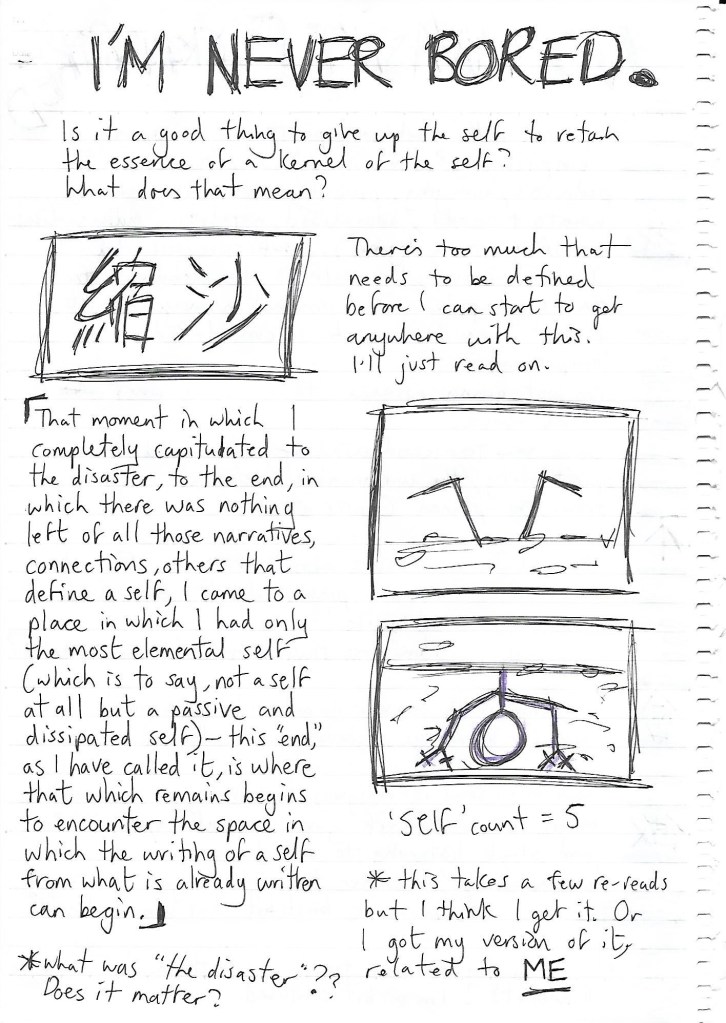 I'M NEVER BORED.
Is it a good thing to give up the self to retain
the essence of a kernel of the self?
What does that mean?
縮沙
There's too much that
needs to be defined
before I can start to get
anywhere with this.
I'll just read on.
「That moment in which I
completely capitulated to
the disaster, to the end, in
which there was nothing
left of all those narratives,
connections, others that
define a self, I came to a
place in which I had only
the most elemental self
(which is to say, not a self
at all but a passive and
dissipated self) – this "end,"
as I have called it, is where
that which remains begins
to encounter the space in
which the writing of a self
from what is already written
can begin.」
*what was "the disaster"??
Does it matter?
'self' count = 5
* this takes a few re-reads
but I think I get it. Or
I got my version of it,
related to ME